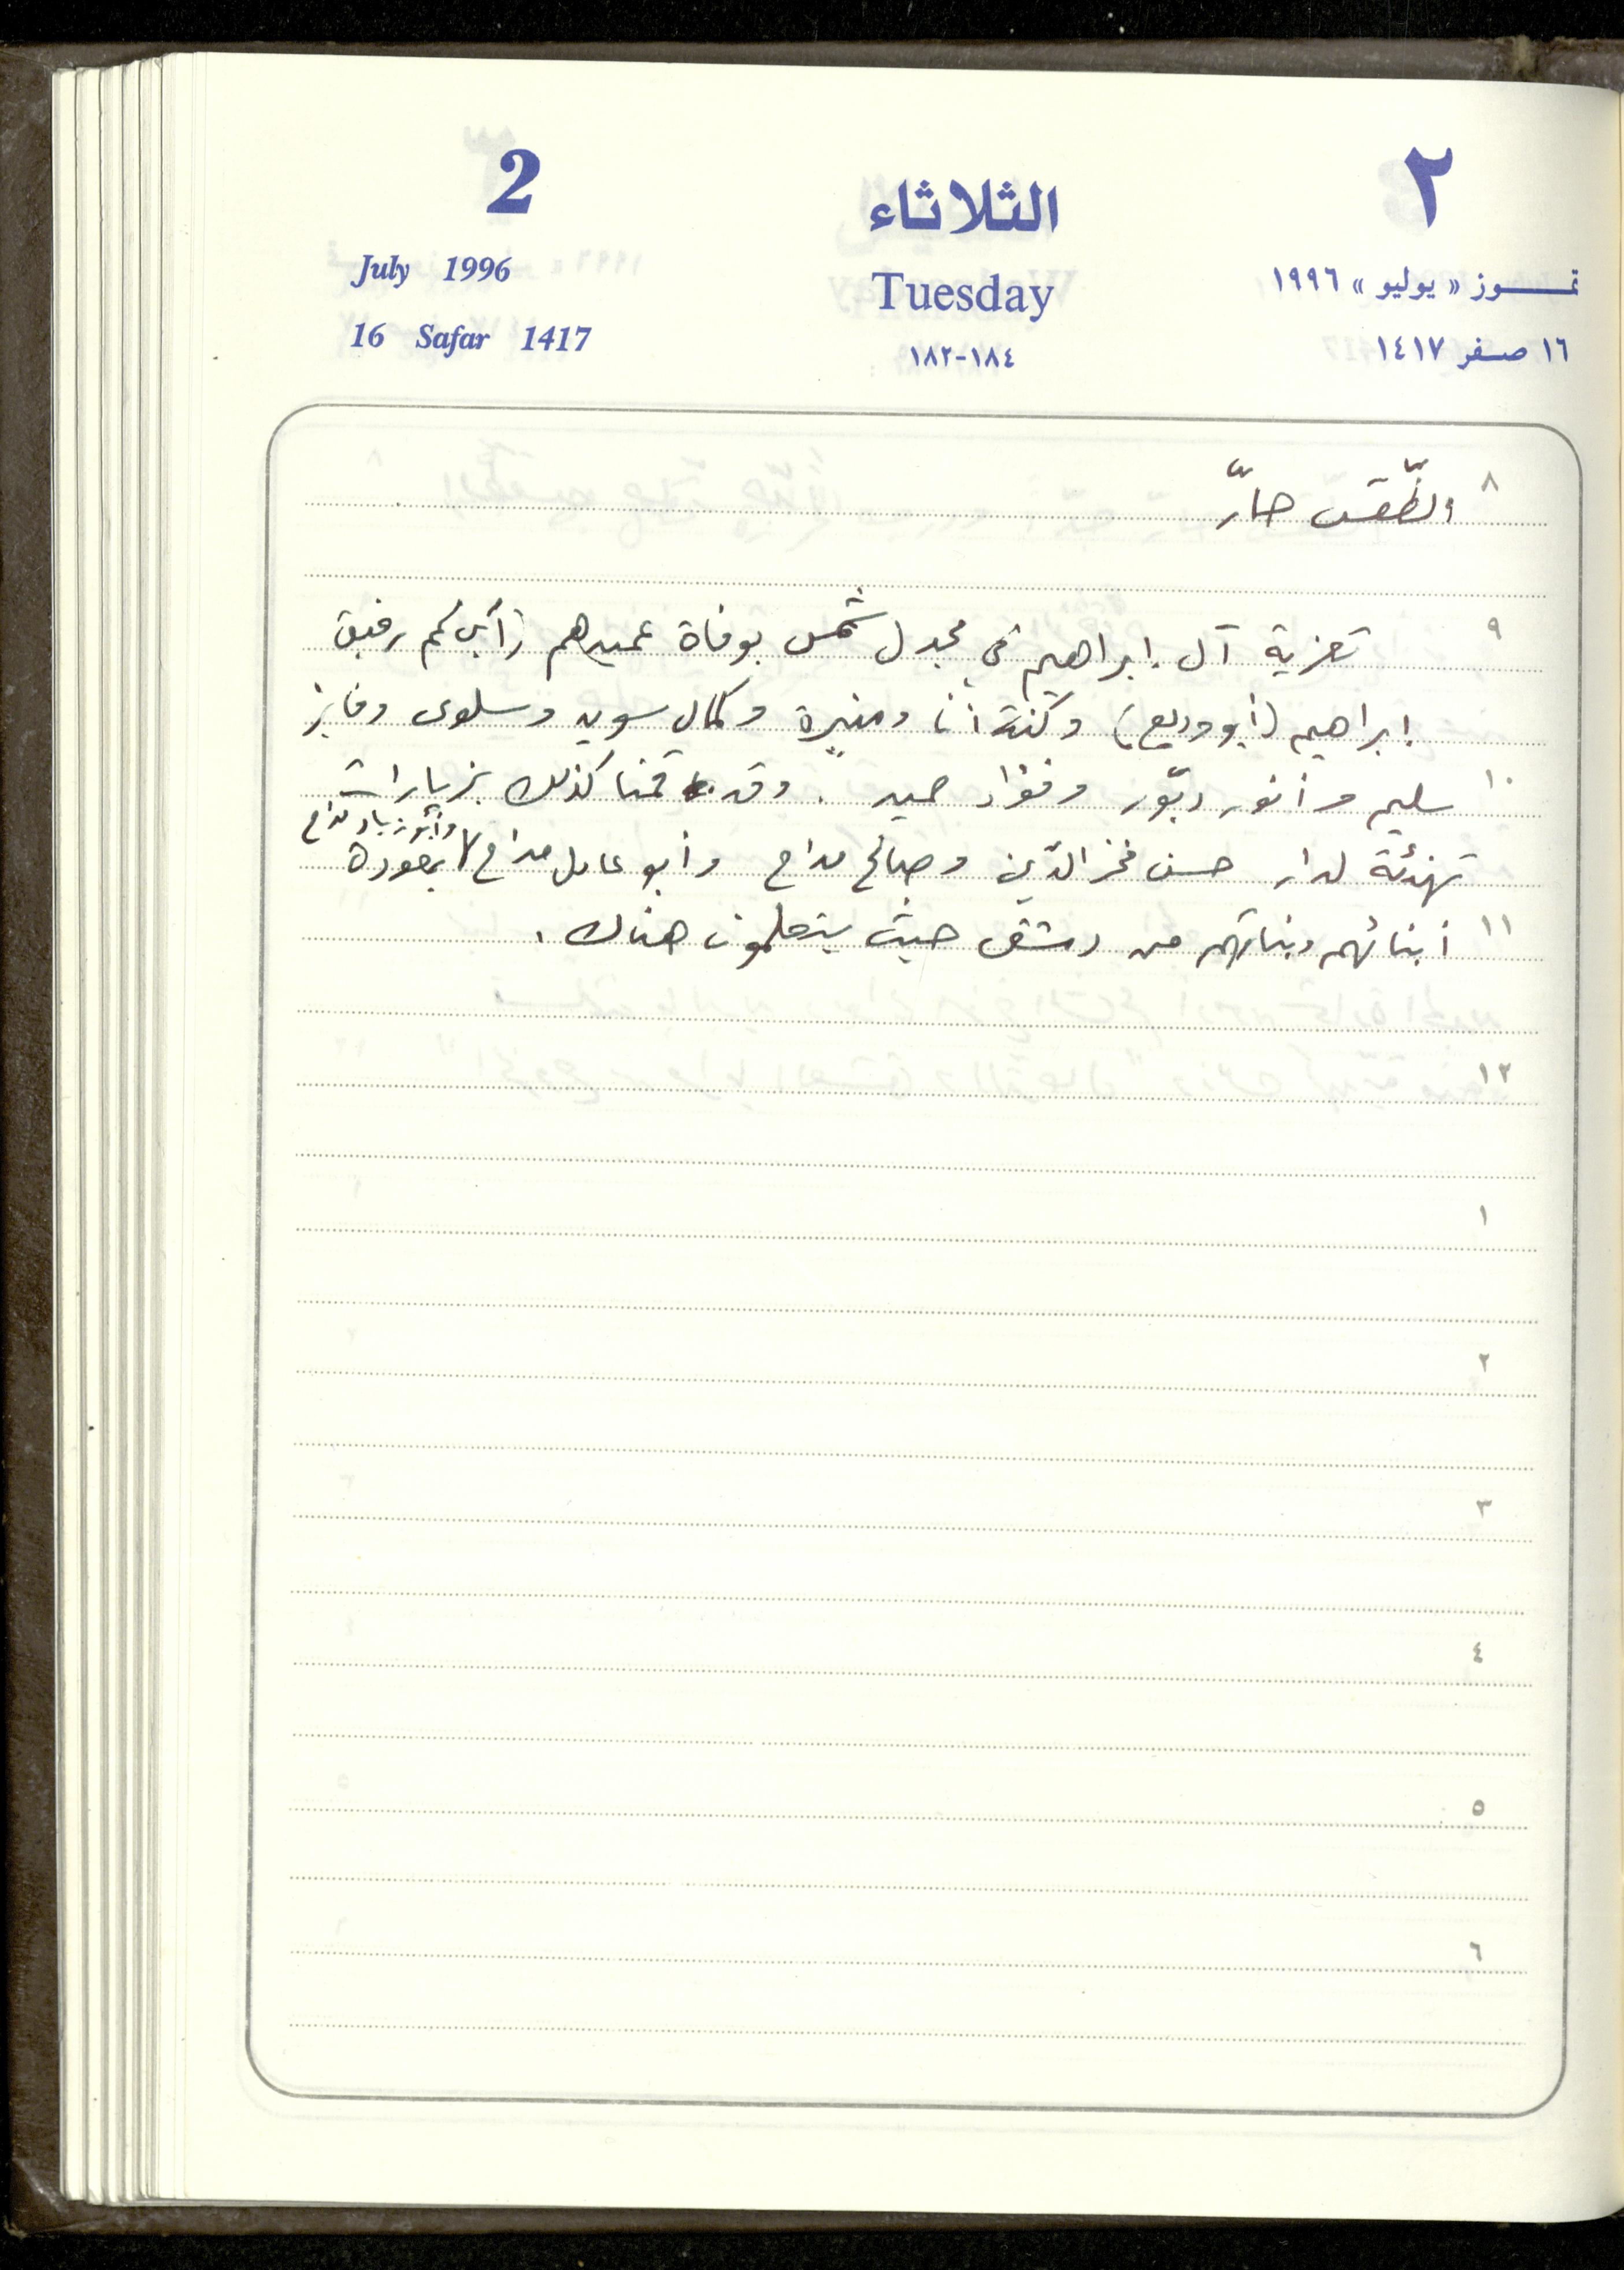 2
الثلاثاء
٢
July 1996
Tuesday
تمـــوز « يوليو » ١٩٩٦
16 Safar 1417
١٨٤-١٨٢
١٦ صفر ١٤١٧
٨ الطّقس حارّ
٩ تعزية آل إبراهيم في مجدل شمس بوفاة عميدهم رفيق
إبراهيم (أبو وديع) وكنت أنا ومنيرة وكمال سويد وسلوى وفايز
١٠ سليم وأنور دبّور وفؤاد حميد . وقد قمنا كذلك بزيارات
وأبو زياد مداح
تهنئة لدار حسن فخر الدّين وصالح مداح وأبو عادل مداح بعودة
١١ أبنائهم وبناتهم من دمشق حيث يتعلمون هناك .
١٢
١
٢
٣
٤
٥
٦